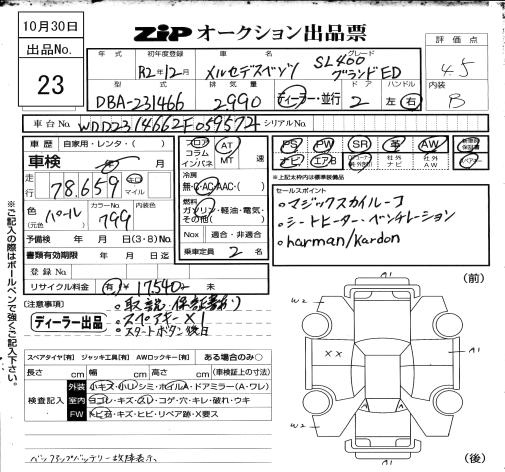 10月30日
ZIP オークション出品票
出品No.
23
評価点
4.5
内装
B
年式
初年度登録
車名
グレード
R2年12月
メルセデスベンツ
SL400
グランドED
型式
排気量
ドア
ハンドル
DBA-231466
2990
ディーラー・並行
2
左 右
車台No.
WDD2314662F059572
シリアルNo.
車歴
自家用・レンタ・( )
車検
年 月
走行
78,659
キロ
マイル
色
(元色)
パール
カラーNo.
799
内装色
予備検 年 月 日(3・8)No.
書類有効期限 年 月 日迄
登録No.
リサイクル料金
有
17,540
未
フロア
コラム
インパネ
AT
MT
速
冷房
無・C・AC・AAC・( )
燃料
ガソリン・軽油・電気・
その他( )
Nox
適合・非適合
乗車定員
2
名
PS
PW
SR
革
AW
ナビ
エアB
社外
ナビ
社外
AW
上記太枠は標準装備品
セールスポイント
・マジックスカイルーフ
・シートヒーター・ベンチレーション
・harman/kardon
[注意事項]
・取説・保証書有り
・スペアキー×1
・スタートボタン後日
ディーラー出品
※ご記入の際はボールペンで強くご記入下さい。
スペアタイヤ[有] ジャッキ工具[有] AWロックキー[有]
ある場合のみ○
長さ cm 幅 cm 高さ cm (車検証上の寸法)
検査記入
外装
小キズ・小凹・シミ・ホイルA・ドアミラー(A・ワレ)
室内
ヨゴレ・キズ・スレ・コゲ・穴・キレ・破れ・ウキ
FW
トビ石・キズ・ヒビ・リペア跡・X要ス
バックアップバッテリー故障表示、
(前)
A1
W2
XX
A1
W2
A1
(後)